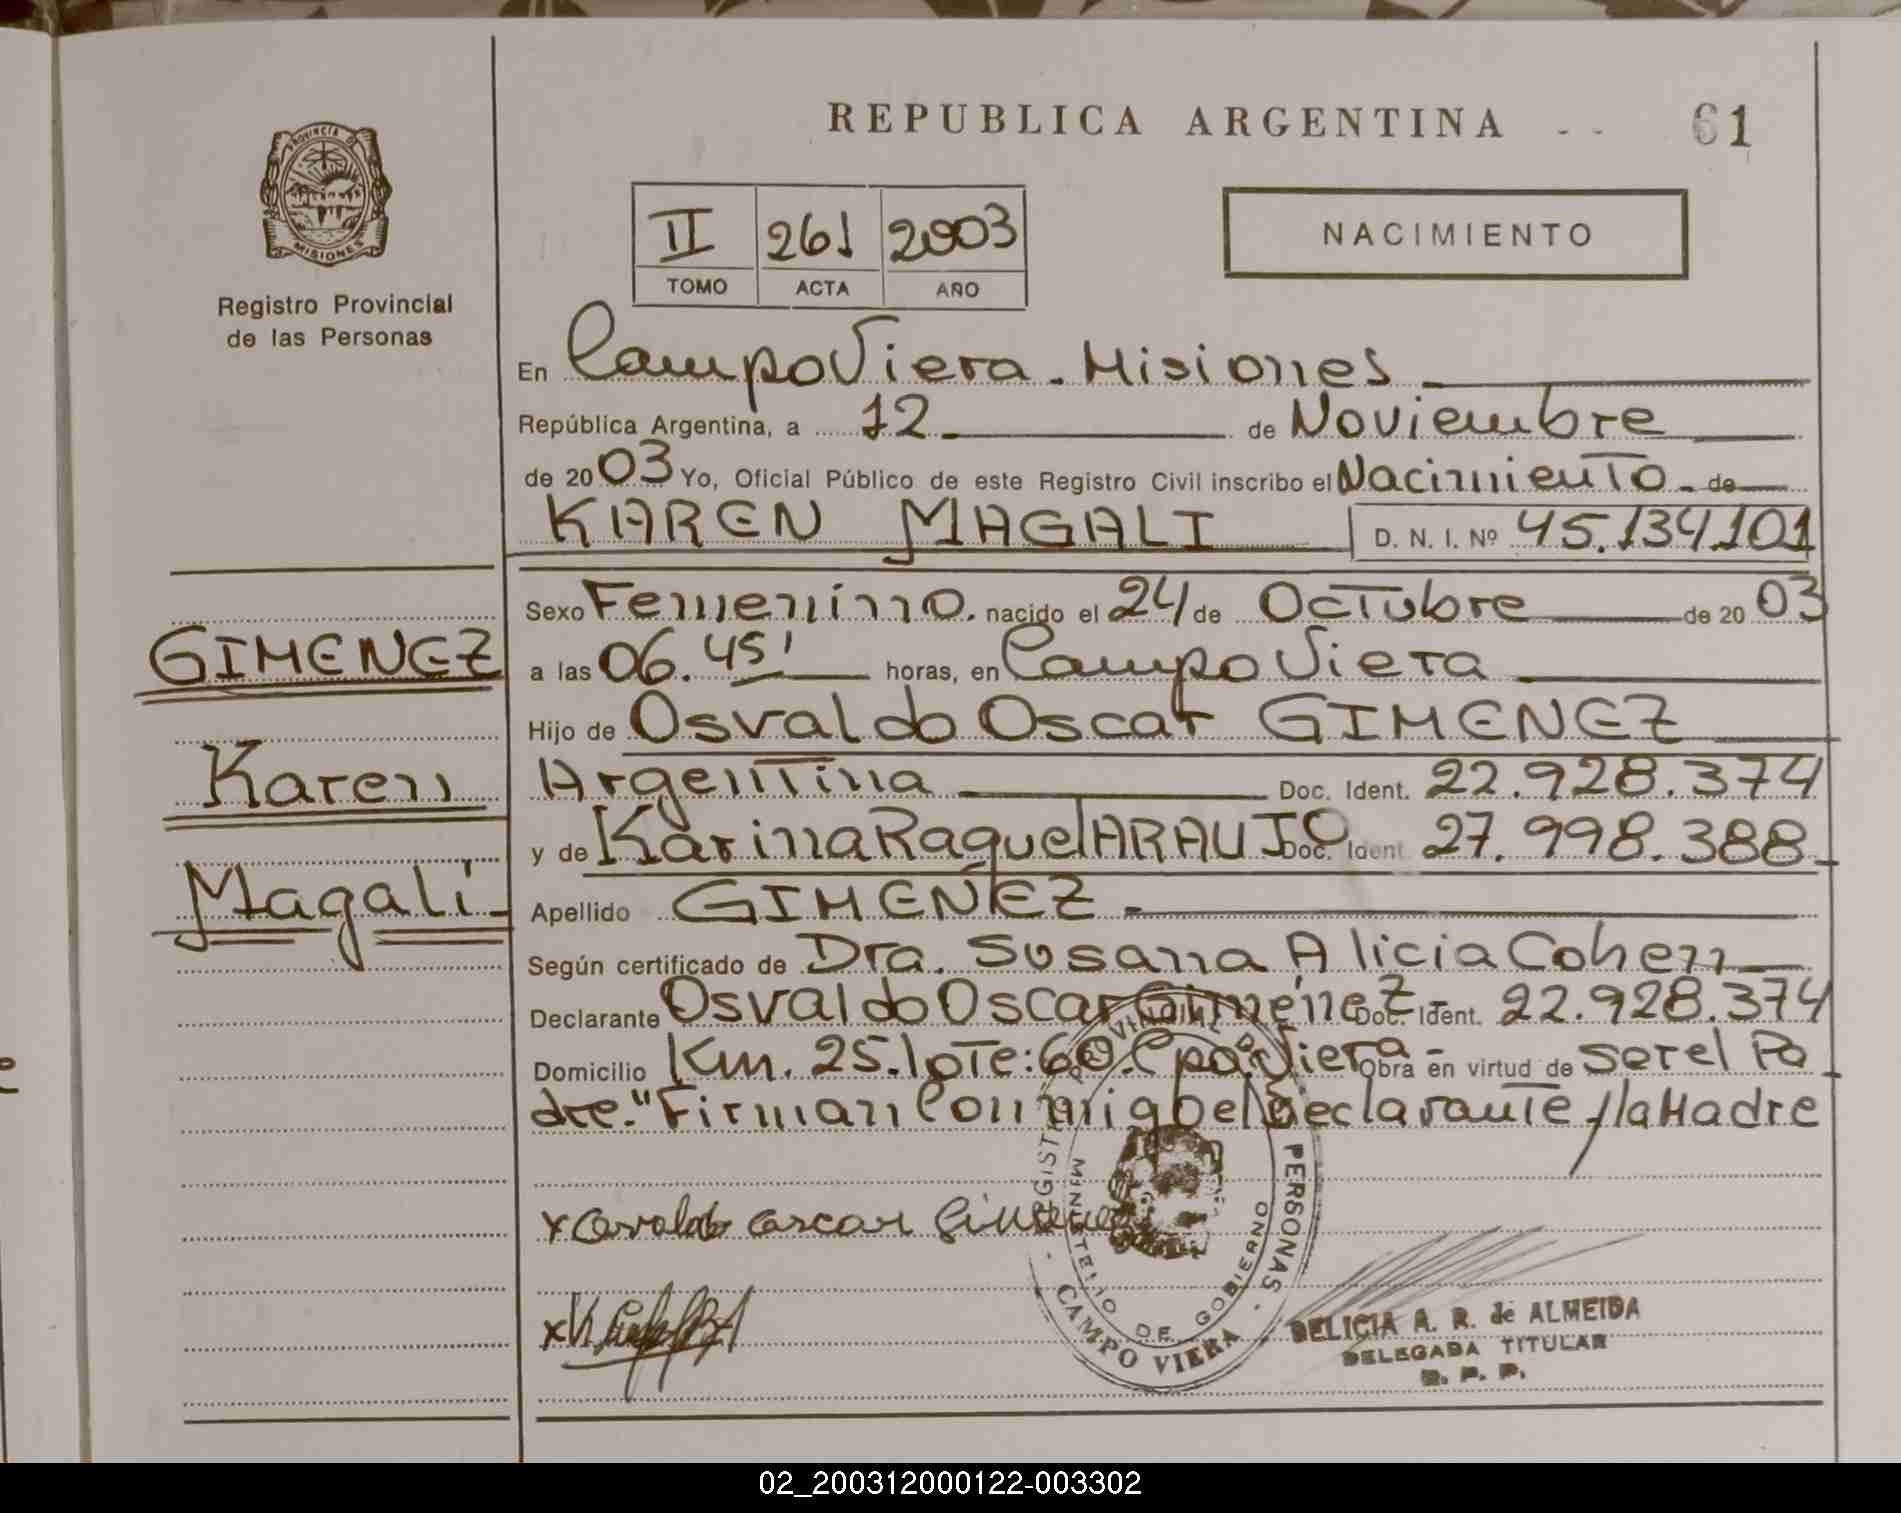 REPUBLICA ARGENTINA - - 61
PROVINCIA DE
MISIONES
Registro Provincial
de las Personas
II 261 2003
TOMO ACTA AÑO
NACIMIENTO
En Campo Viera - Misiones
República Argentina, a 12 de Noviembre
de 20 03 Yo, Oficial Público de este Registro Civil inscribo el Nacimiento - de
KAREN MAGALI D. N. I. Nº 45.134.101
GIMENEZ
Karen
Magali
Sexo Femenino. nacido el 24 de Octubre de 20 03
a las 06.45' horas, en Campo Viera
Hijo de Osvaldo Oscar GIMENEZ
Argentina Doc. Ident. 22.928.374
y de Karina Raquel ARAUJO Doc. Ident 27.998.388
Apellido GIMENEZ -
Según certificado de Dra. Susana Alicia Cohen
Declarante Osvaldo Oscar Gimenez Doc. Ident. 22.928.374
Domicilio Km. 25. lote: 60. Cpo. Viera - Obra en virtud de ser el Pa
dre." Firman Conmigo el declarante y la Madre
x Osvaldo Oscar Gimenez
PERSONAS
MINISTERIO DE GOBIERNO
CAMPO VIERA
DELICIA A. R. de ALMEIDA
DELEGADA TITULAR
R. P. P.
02_200312000122-003302